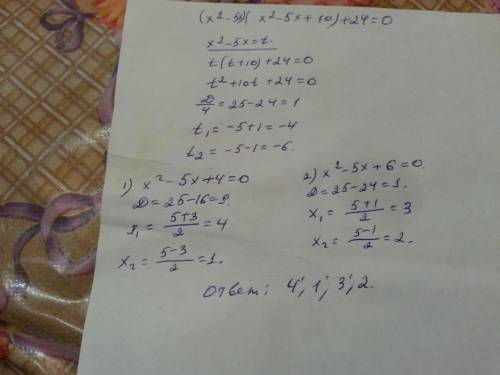 (x²-5x)(x²-5x+10)+24=0
x²-5x=t.
t(t+10)+24=0
t²+10t+24=0
D/4=25-24=1
t₁=-5+1=-4
t₂=-5-1=-6.
1) x²-5x+4=0
D=25-16=9.
x₁=(5+3)/2=4
x₂=(5-3)/2=1.
2) x²-5x+6=0.
D=25-24=1.
x₁=(5+1)/2=3
x₂=(5-1)/2=2.
Ответ: 4; 1; 3; 2.